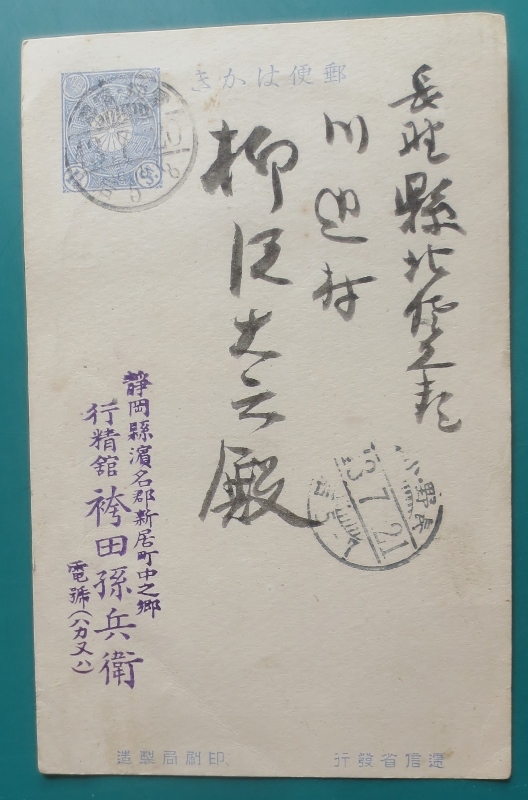 郵便はかき
長野縣北佐久郡
川辺村
柳沢
殿
静岡縣濱名郡新居町中之郷
行精舘 袴田孫兵衛
電號(ハカ又ハハ)
13.7.21
逓信省發行
印刷局製造